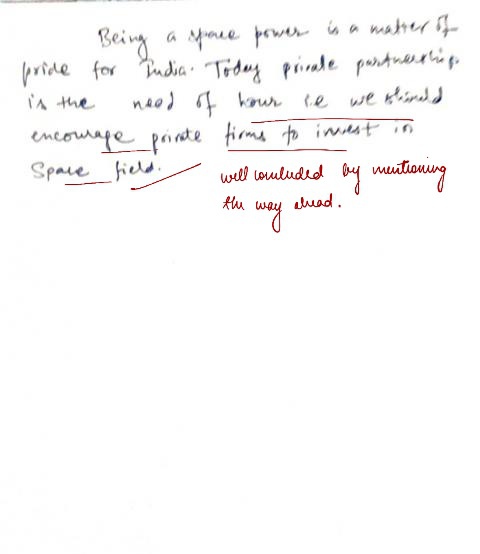 Being a space power is a matter of
pride for India. Today private partnership
is the need of hour i.e we should
encourage private firms to invest in
Space field.
well concluded by mentioning
the way ahead.